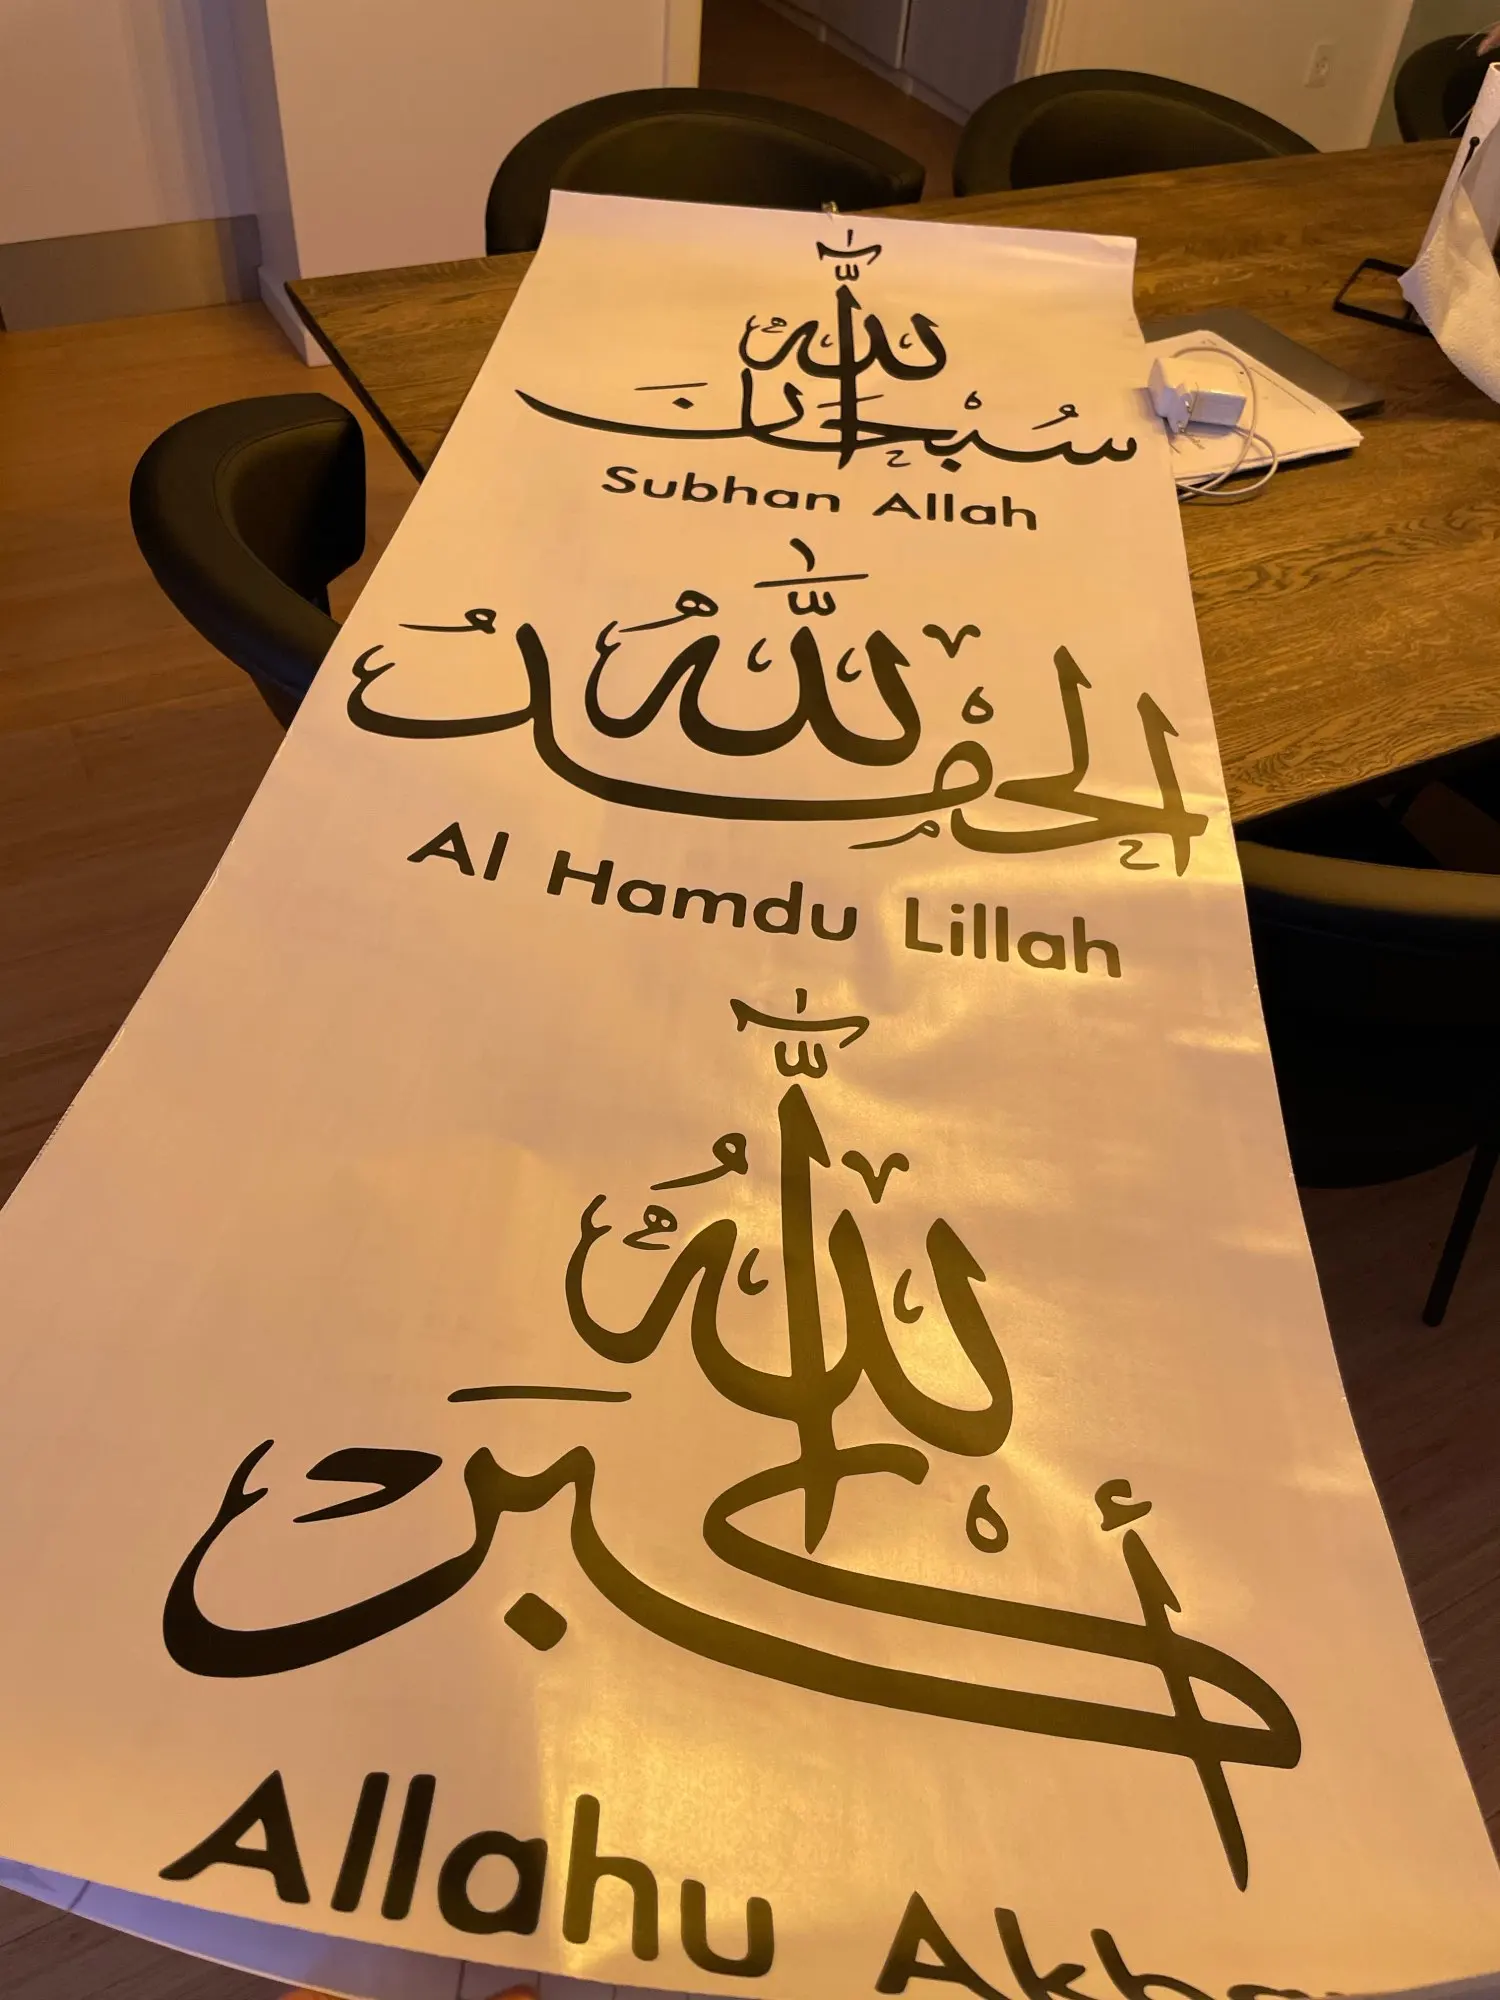 سُبْحَانَ اللّٰه
Subhan Allah
الحَمْدُ لِلّٰهِ
Al Hamdu Lillah
اللّٰهُ أَكْبَر
Allahu Akb